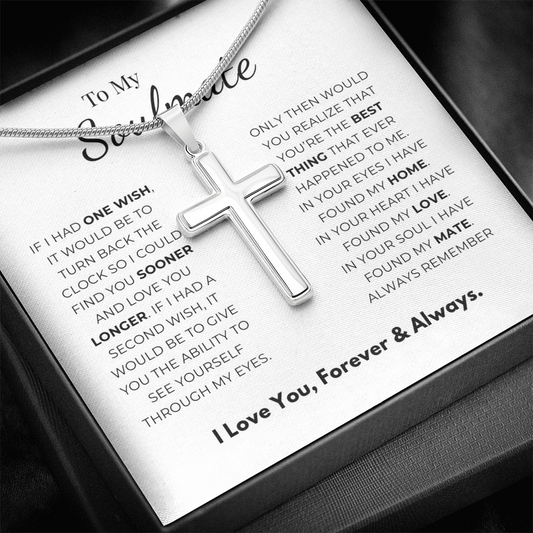 To My
Soulmate
IF I HAD ONE WISH,
IT WOULD BE TO
TURN BACK THE
CLOCK SO I COULD
FIND YOU SOONER
AND LOVE YOU
LONGER. IF I HAD A
SECOND WISH, IT
WOULD BE TO GIVE
YOU THE ABILITY TO
SEE YOURSELF
THROUGH MY EYES.
ONLY THEN WOULD
YOU REALIZE THAT
YOU'RE THE BEST
THING THAT EVER
HAPPENED TO ME.
IN YOUR EYES I HAVE
FOUND MY HOME.
IN YOUR HEART I HAVE
FOUND MY LOVE.
IN YOUR SOUL I HAVE
FOUND MY MATE.
ALWAYS REMEMBER
I Love You, Forever & Always.